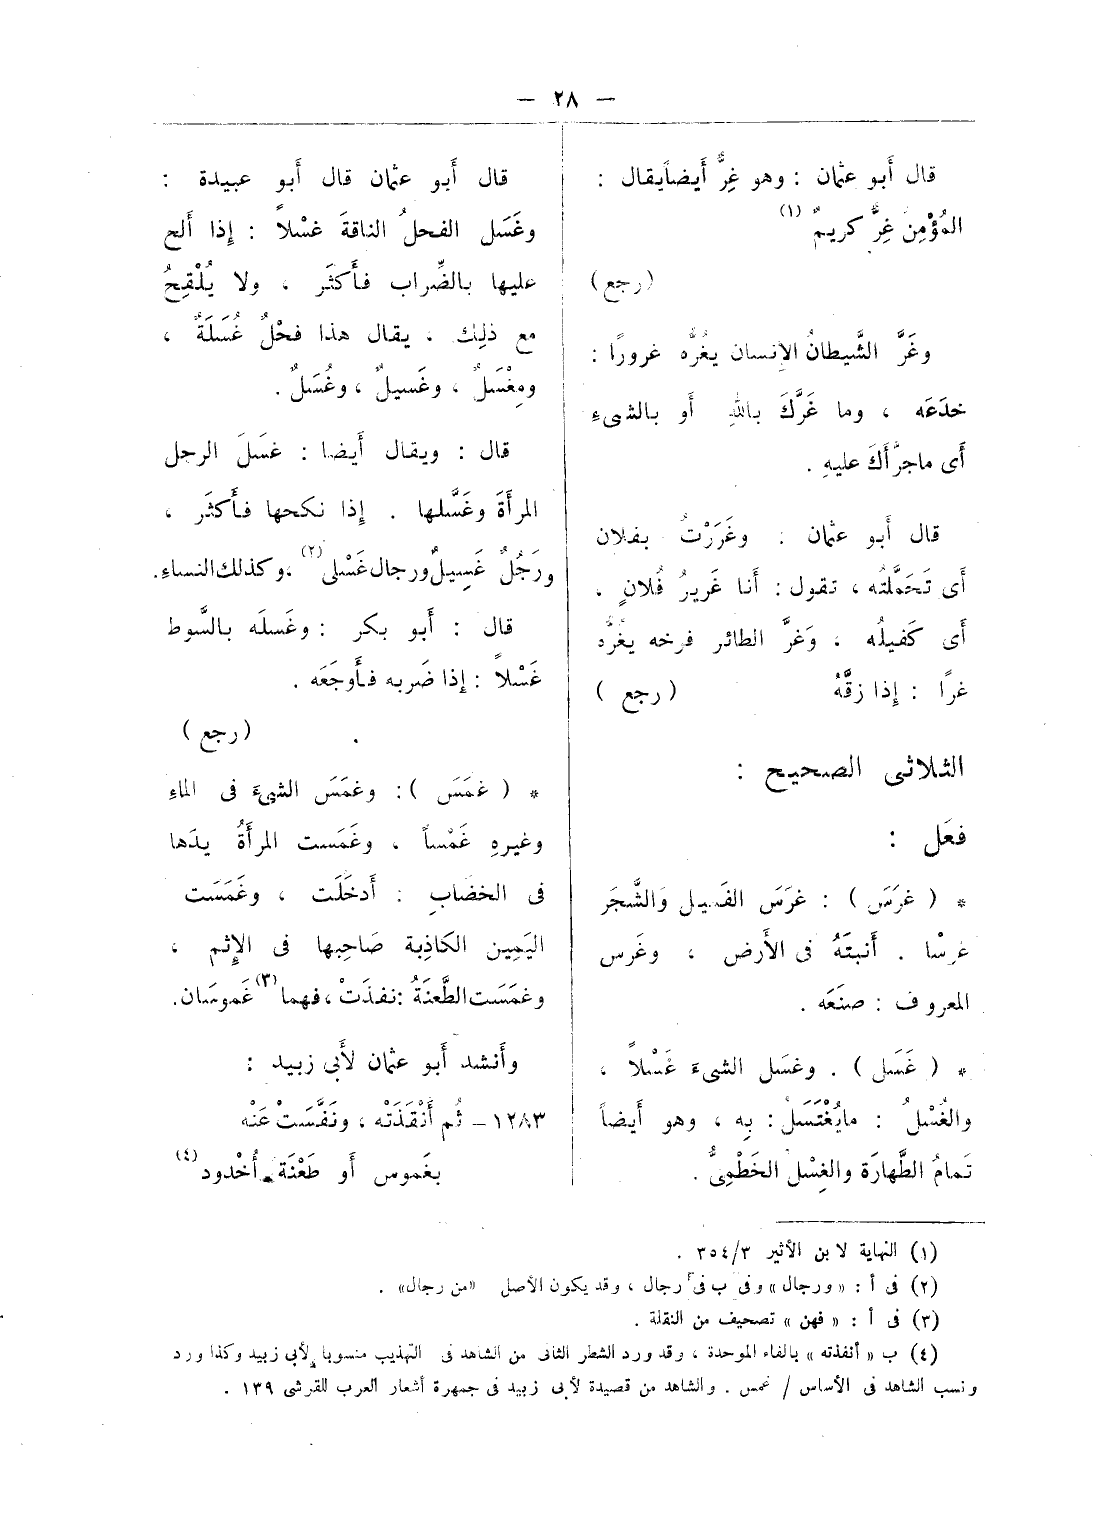 — ٢٨ —
قال أَبو عثمان : وهو غِرٌّ أَيضاً يقال :
المُؤْمِن غِرٌّ كريمٌ (١)
(رجع)
وغَرَّ الشَّيطانُ الإنسان يغُرُّه غرورًا :
خدَعَه ، وما غَرَّكَ باللهِ أَو بالشىءِ
أَى ماجرَّأَكَ عليهِ .
قال أَبو عثمان : وغَرَرْتُ بفلان
أَى تَحَمَّلتُه ، تقول : أَنا غَريرُ فُلانٍ .
أَى كَفيلُه ، وَغرَّ الطائر فرخه يغُرُّه
غرًا : إِذا زقَّهُ (رجع)
الثلاثى الصحيح :
فعَل :
* (غرَسَ) : غرَسَ الفَسيل وَالشَّجَر
غرسْا . أَنبتَهُ فى الأَرض ، وغَرس
المعروف : صنَعَه .
* (غَسَل) . وغسَل الشىءَ غَسْلاً ،
والغُسْلُ : مايُغْتَسَلُ : بِه ، وهو أَيضاً
تَمامُ الطَّهارَة والغِسْل الخَطْمِىُّ .
قال أَبو عثمان قال أَبو عبيدة :
وغَسَل الفحلُ الناقةَ غسْلاً : إِذا أَلح
عليها بالضِّراب فأَكثَر ، ولا يُلْقِحُ
مع ذلِك ، يقال هذا فحْلٌ غُسَلَةٌ ،
ومِغْسَلٌ ، وغَسيلٌ ، وغُسَلٌ .
قال : ويقال أَيضا : غسَلَ الرجل
المرأَةَ وغَسَّلها . إِذا نكحها فأَكثَر ،
ورَجُلٌ غَسِيلٌ ورجال غَسْلى (٢) ، وكذلك النساءِ .
قال : أَبو بكر : وغَسلَه بالسَّوط
غَسْلاً : إِذا ضَربه فأَوجَعَه .
(رجع)
* (غمَسَ) : وغمَسَ الشىءَ فى الماءِ
وغيرِهِ غَمْساً ، وغَمَست المرأَةُ يدَها
فى الخضَابِ : أَدخَلَت ، وغَمَسَت
اليَمِين الكاذِبة صَاحِبها فى الإِثم ،
وغمَسَت الطَّعنَةُ : نفذَتْ ، فهما (٣) غَموسَان .
وأَنشد أَبو عثمان لأَبى زبيد :
١٢٨٣ – ثُم أَنْقَذَتْه ، ونَفَّسَتْ عَنْه
بغَموس أَو طَعْنَة أُخْدود (٤)
(١) النهاية لابن الأثير ٣/٣٥٤ .
(٢) فى أ : «ورجال» وفى ب فى رجال ، وقد يكون الأصل «من رجال» .
(٣) فى أ : «فهن» تصحيف من النقلة .
(٤) ب «أنفذته» بالفاء الموحدة ، وقد ورد الشطر الثانى من الشاهد فى التهذيب منسوبا لأبى زبيد وكذا ورد
ونسب الشاهد فى الأساس / غمس . والشاهد من قصيدة لأبى زبيد فى جمهرة أشعار العرب للقرشى ١٣٩ .